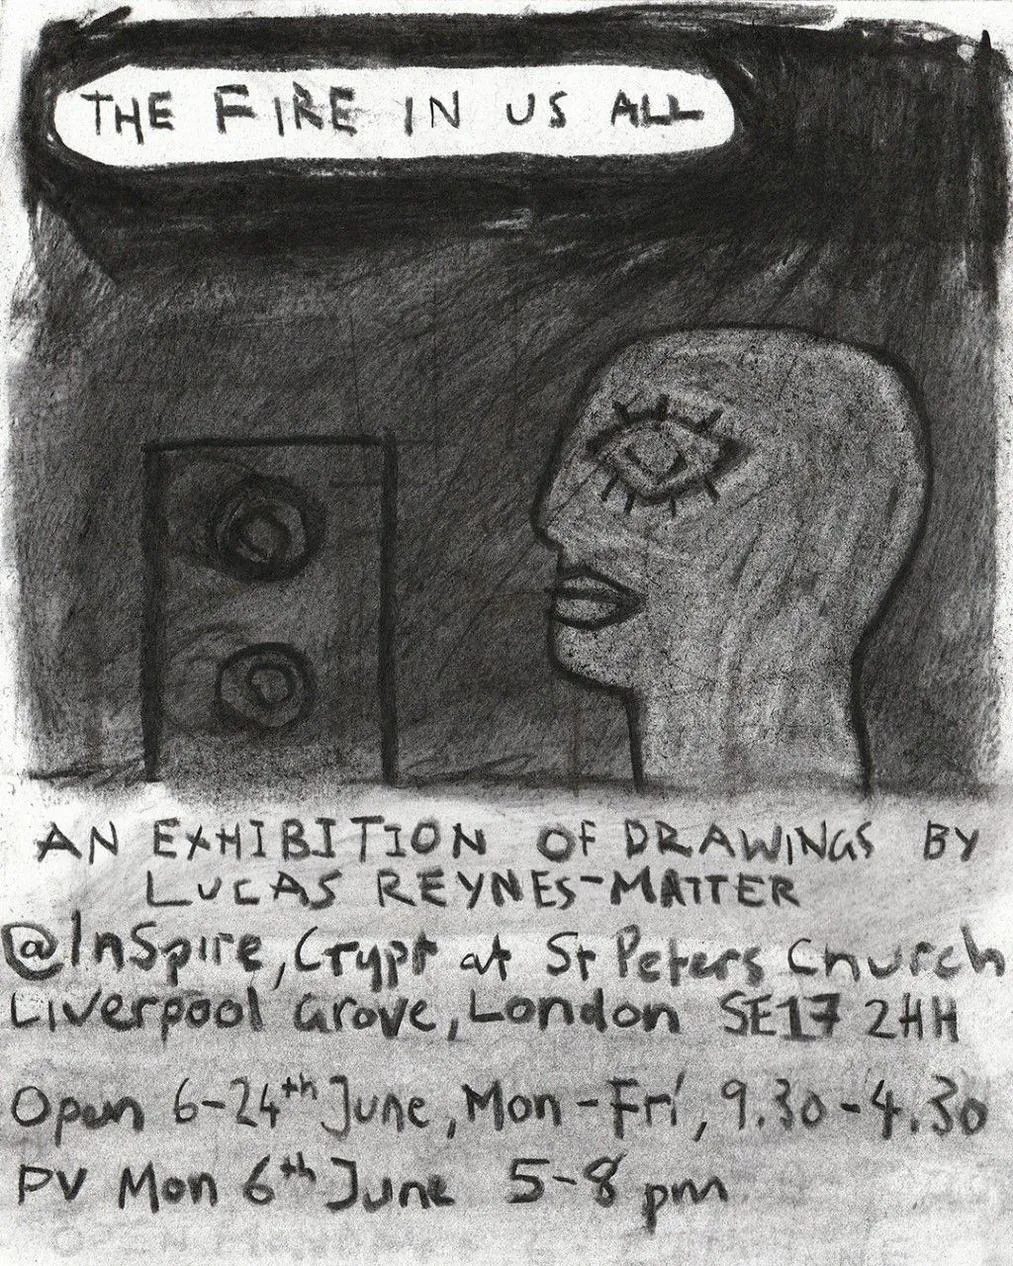 THE FIRE IN US ALL
AN EXHIBITION OF DRAWINGS BY
LUCAS REYNES-MATTER
@InSpire, Crypt at St Peters Church
Liverpool Grove, London SE17 2HH
Open 6-24th June, Mon-Fri, 9.30-4.30
PV Mon 6th June 5-8 pm